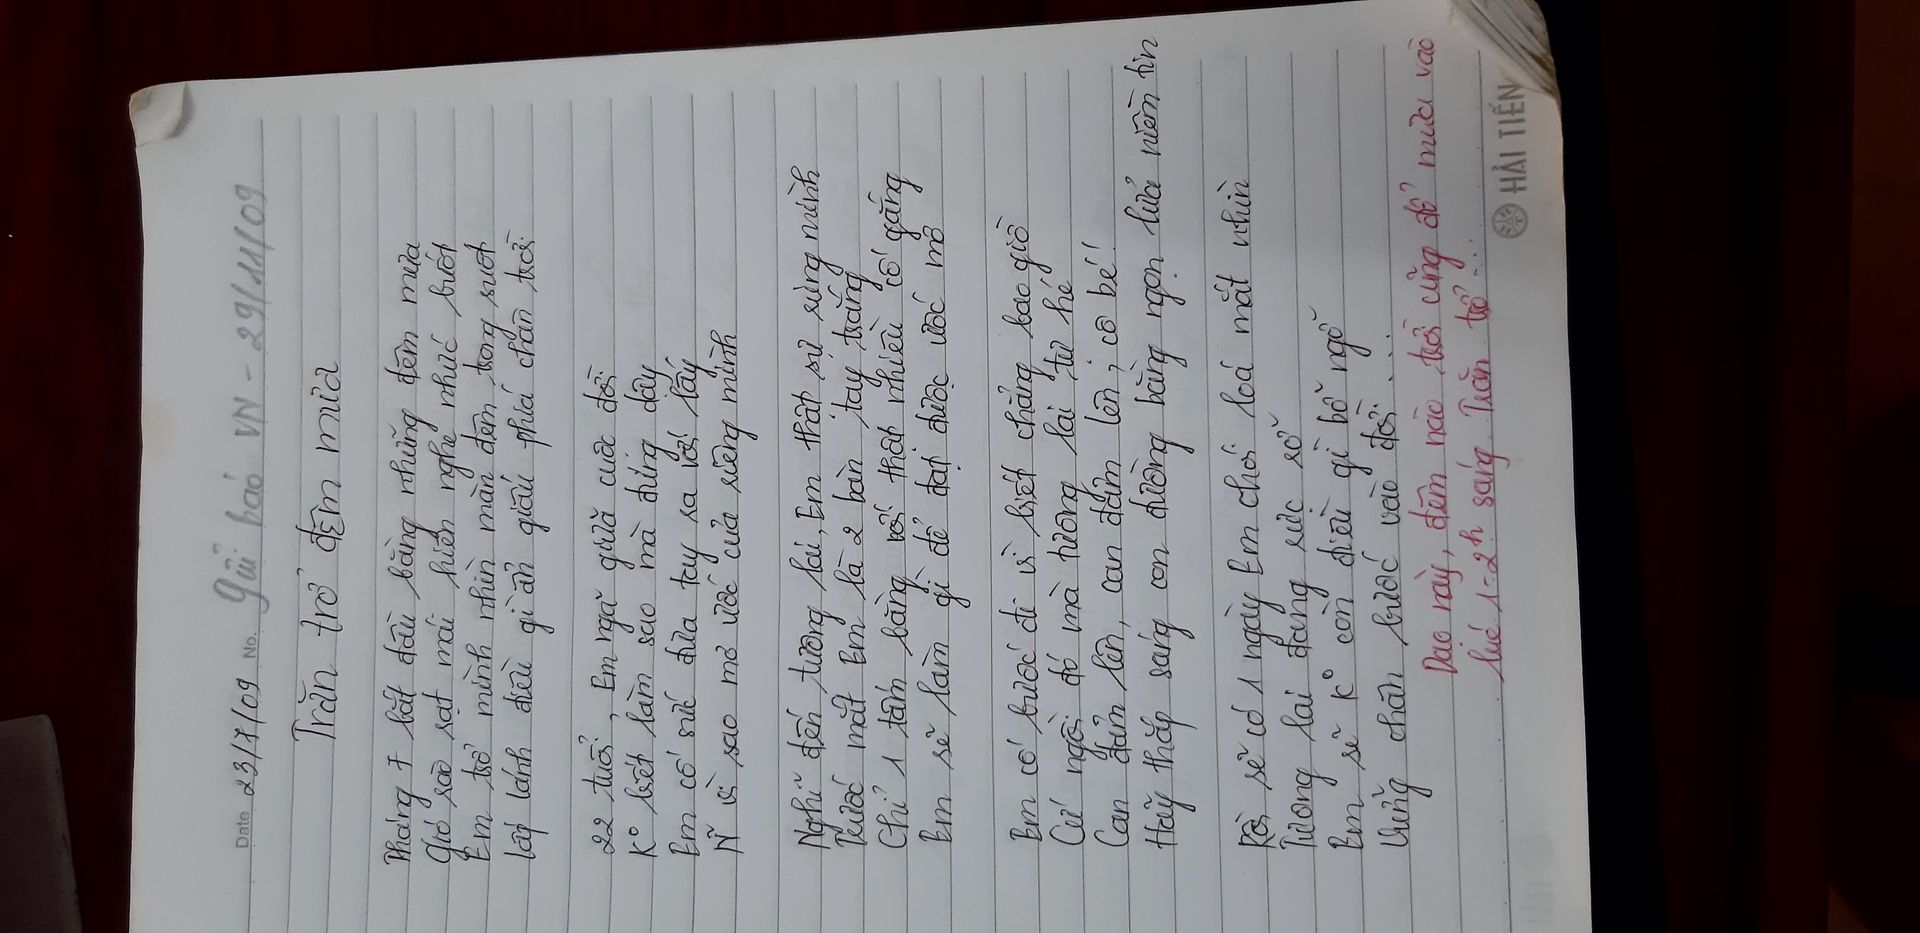 Date 23/7/09 No. gửi báo VN - 29/11/09
Trăn trở đêm mưa
Tháng 7 bắt đầu bằng những đêm mưa
Gió sào sạt mái hiên nghe nhức buốt
Em trở mình nhìn màn đêm trong suốt
Lấp lánh điều gì ẩn giấu phía chân trời
22 tuổi, Em ngã giữa cuộc đời
K° biết làm sao mà đứng dậy
Em cố sức đưa tay ra với lấy
Ñ vì sao mơ ước của riêng mình
Nghĩ đến tương lai, Em thật sự rùng mình
Trước mắt Em là 2 bàn tay trắng
Chỉ 1 tấm bằng với thật nhiều cố gắng
Em sẽ làm gì để đạt được ước mơ
Em cố bước đi vì biết chẳng bao giờ
Cứ ngồi đó mà tương lai tự hé
Can đảm lên, can đảm lên, cô bé!
Hãy thắp sáng con đường bằng ngọn lửa niềm tin
Rồi sẽ có 1 ngày Em chói loá mắt nhìn
Tương lai đang rực rỡ
Em sẽ K° còn điều gì bỡ ngỡ
Vững chân bước vào đời....
Dạo này, đêm nào trời cũng đổ mưa vào
lúc 1-2h sáng. Trăn trở...
HẢI TIẾN